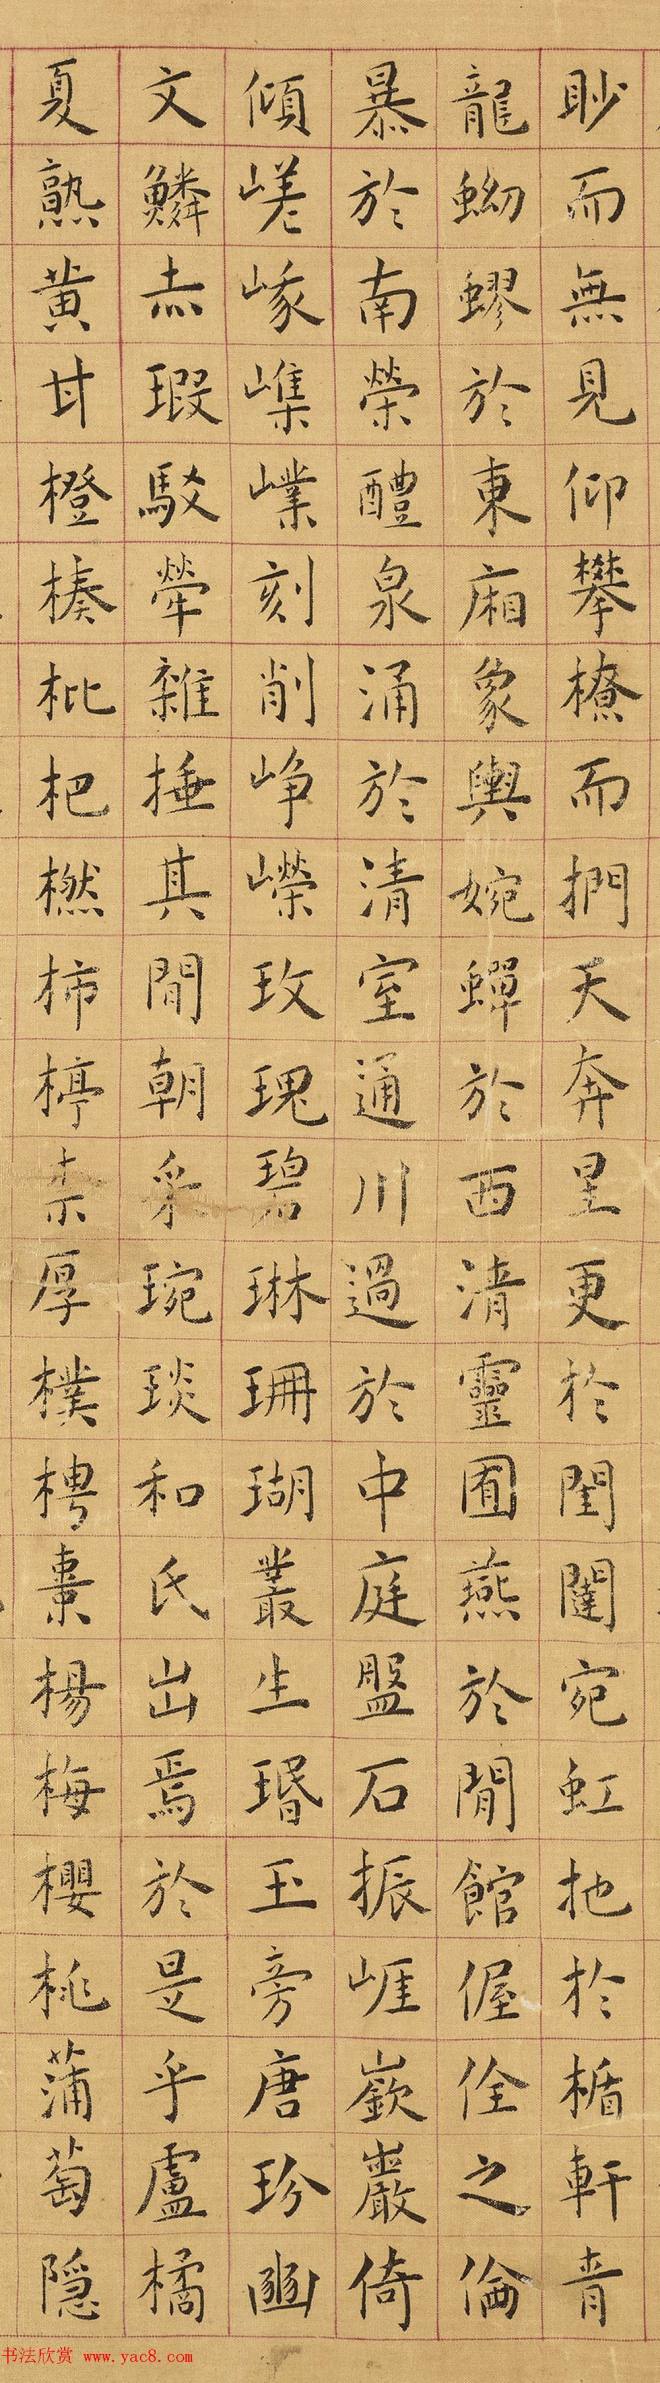 眇而無見仰攀橑而捫天奔星更於閨闥宛虹扡於楯軒青
龍蚴蟉於東廂象輿婉蟬於西清靈圉燕於閒館偓佺之倫
暴於南榮醴泉涌於清室通川過於中庭盤石振崖嶔巖倚
傾嵯峩嶕嶫刻削崢嶸玫瑰碧琳珊瑚叢生瑉玉旁唐玢豳
文鱗赤瑕駁犖雜捶其閒朝采琬琰和氏出焉於是乎盧橘
夏熟黄甘橙楱枇杷橪柿楟柰厚樸梬棗楊梅櫻桃蒲萄隠
书法欣赏 www.yac8.com